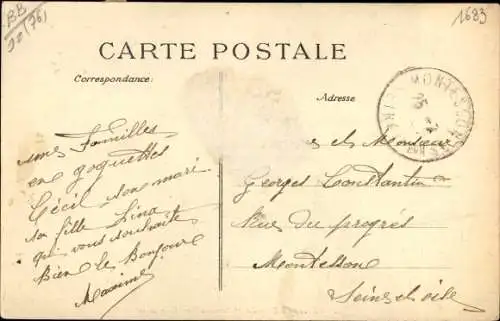 BB
1683
CARTE POSTALE
Correspondance:
Adresse
MONTESSON
Familles
en goguettes
Cécil son mari
sa fille Lina
qui vous souhaite
Bien le Bonjour
Maxime
et Monsieur
Georges Constantin
Rue du progrés
Montesson
Seine et oise